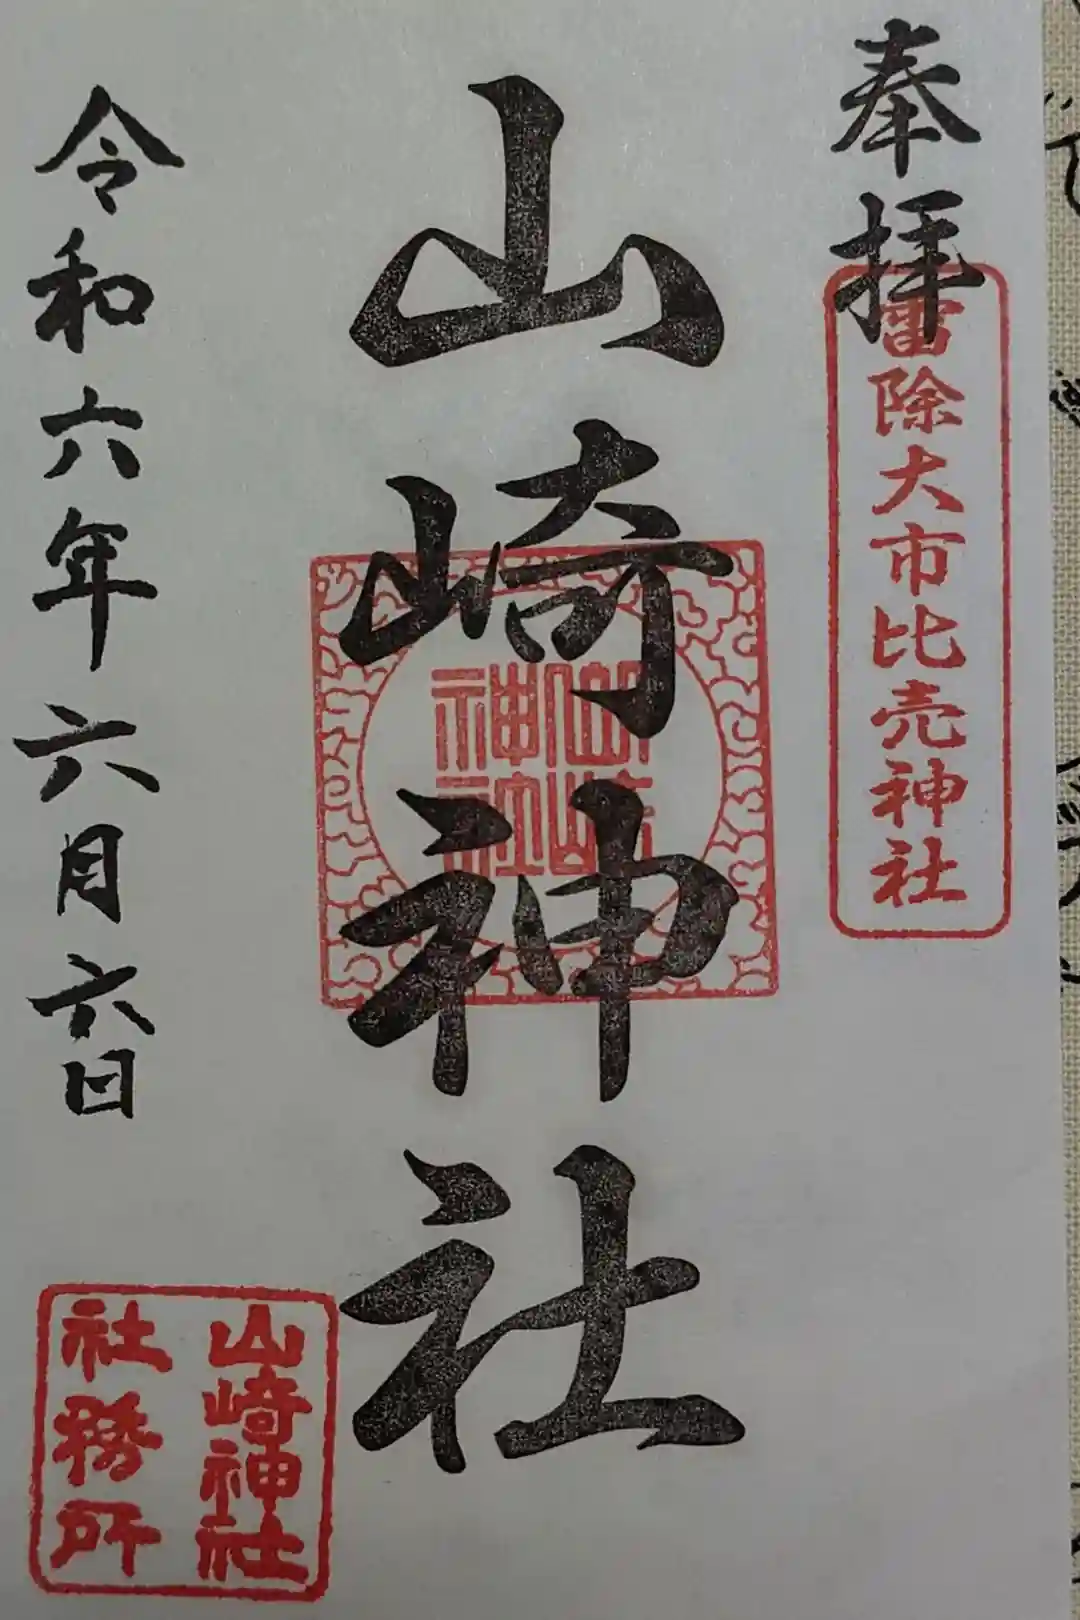 奉拝
雷除大市比売神社
山﨑神社
山﨑神社
令和六年六月六日
山﨑神社
社務所